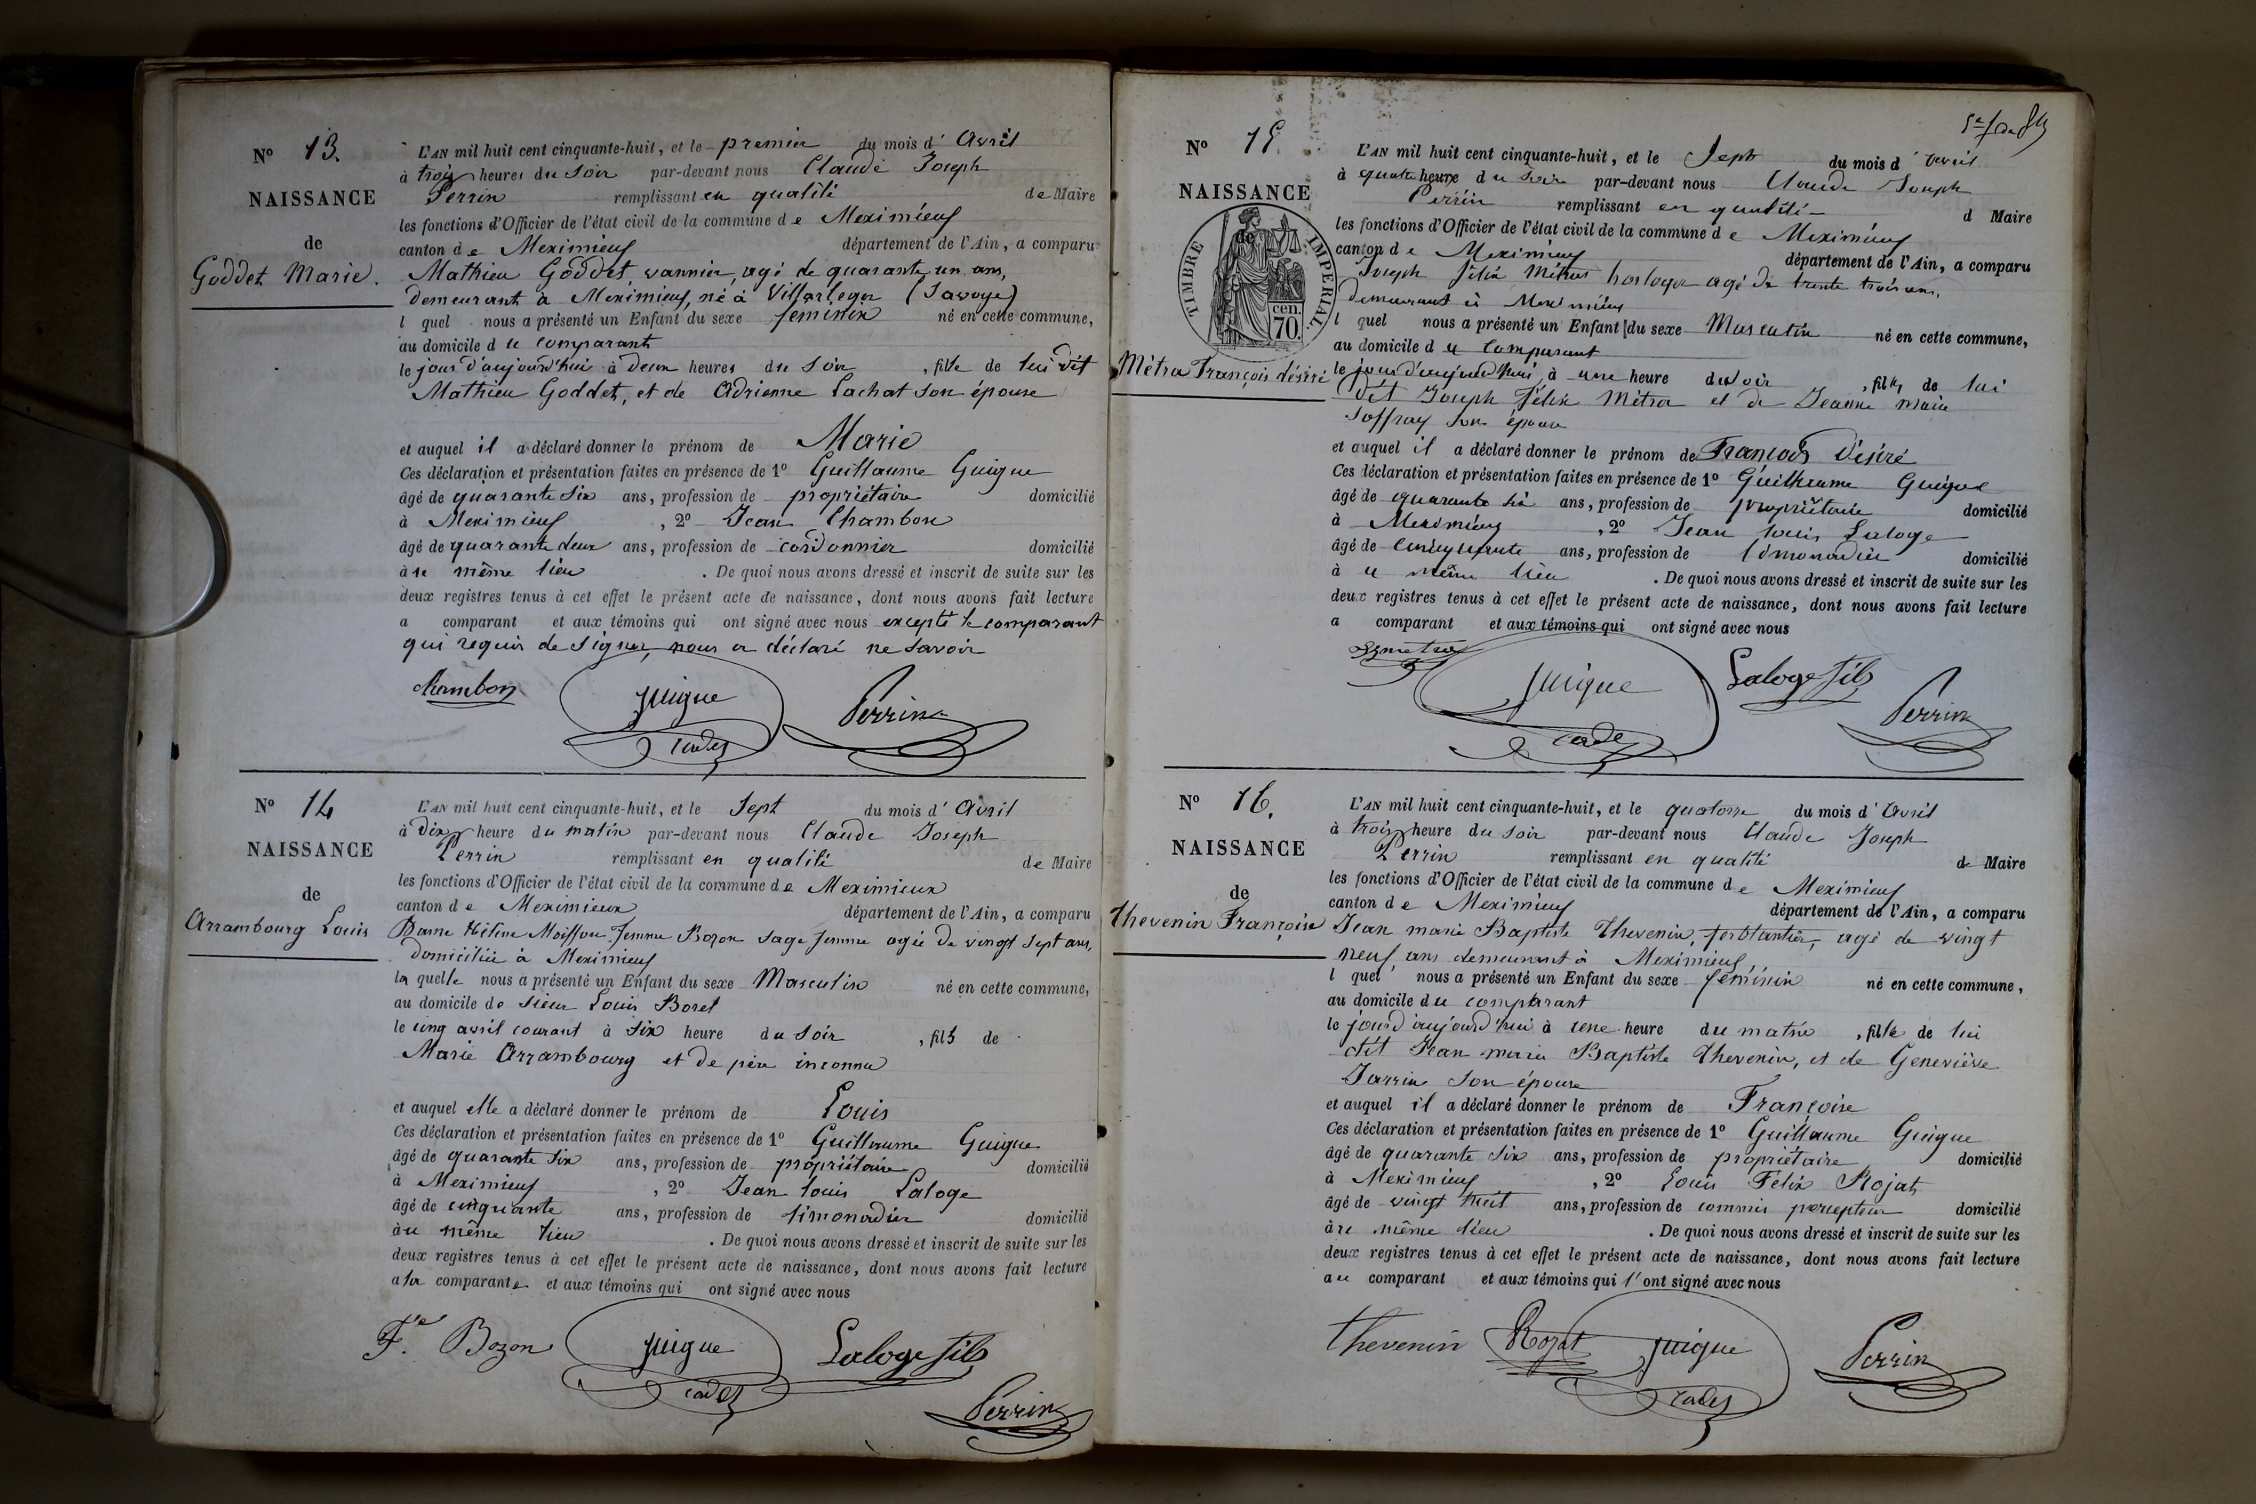 N° 13.
NAISSANCE
de
Goddet Marie.
L'AN mil huit cent cinquante-huit, et le premier du mois d' Avril
à trois heures du soir par-devant nous Claude Joseph
Perrin remplissant en qualité de Maire
les fonctions d'Officier de l'état civil de la commune de Meximieux
canton de Meximieux département de l'Ain, a comparu
Mathieu Goddet, vannier, agé de quarante un ans,
demeurant à Meximieux, né à Villarleger (Savoye)
l quel nous a présenté un Enfant du sexe feminin né en cette commune,
au domicile du comparant
le jour d'aujourd'hui à deux heures du soir, fille de lui dit
Mathieu Goddet, et de Adrienne Lachat son épouse
et auquel il a déclaré donner le prénom de Marie
Ces déclaration et présentation faites en présence de 1° Guillaume Guigue
âgé de quarante six ans, profession de propriétaire domicilié
à Meximieux, 2° Jean Chambon
âgé de quarante deux ans, profession de cordonnier domicilié
à u même lieu. De quoi nous avons dressé et inscrit de suite sur les
deux registres tenus à cet effet le présent acte de naissance, dont nous avons fait lecture
a comparant et aux témoins qui ont signé avec nous excepté le comparant
qui requis de signer, nous a déclaré ne savoir
Chambon guigue cadet Perrin
N° 14
NAISSANCE
de
Arrambourg Louis
L'AN mil huit cent cinquante-huit, et le Sept du mois d' Avril
à dix heure du matin par-devant nous Claude Joseph
Perrin remplissant en qualité de Maire
les fonctions d'Officier de l'état civil de la commune de Meximieux
canton de Meximieux département de l'Ain, a comparu
Dame femme Bozon sage femme agée de vingt sept ans,
domiciliée à Meximieux
la quelle nous a présenté un Enfant du sexe Masculin né en cette commune,
au domicile de sieur Louis Boret
le cinq avril courant à six heure du soir, fils de
Marie Arrambourg et de père inconnu
et auquel elle a déclaré donner le prénom de Louis
Ces déclaration et présentation faites en présence de 1° Guillaume Guigue
âgé de quarante six ans, profession de propriétaire domicilié
à Meximieux, 2° Jean Louis Laloge
âgé de cinquante ans, profession de limonadier domicilié
à u même lieu. De quoi nous avons dressé et inscrit de suite sur les
deux registres tenus à cet effet le présent acte de naissance, dont nous avons fait lecture
a la comparante et aux témoins qui ont signé avec nous
Fe Bozon guigue cadet Laloge fils
Perrin
N° 15
NAISSANCE
de
TIMBRE IMPERIAL.
70. cen.
Métra François désiré
L'AN mil huit cent cinquante-huit, et le Sept du mois d' Avril
à quatre heure du soir par-devant nous Claude Joseph
Perrin remplissant en qualité d Maire
les fonctions d'Officier de l'état civil de la commune de Meximieux
canton de Meximieux département de l'Ain, a comparu
Joseph félix Métra horloger agé de trente trois ans,
demeurant à Meximieux
l quel nous a présenté un Enfant du sexe Masculin né en cette commune,
au domicile du comparant
le jour d'aujourd'hui à une heure du soir, fils de lui
dit Joseph félix Métra et de Jeanne Marie
Joffray son épouse
et auquel il a déclaré donner le prénom de François Désiré
Ces déclaration et présentation faites en présence de 1° Guillaume Guigue
âgé de quarante six ans, profession de propriétaire domicilié
à Meximieux, 2° Jean Louis Laloge
âgé de cinquante ans, profession de limonadier domicilié
à u même lieu. De quoi nous avons dressé et inscrit de suite sur les
deux registres tenus à cet effet le présent acte de naissance, dont nous avons fait lecture
a comparant et aux témoins qui ont signé avec nous
guigue cadet Laloge fils Perrin
N° 16.
NAISSANCE
de
Thevenin Françoise
L'AN mil huit cent cinquante-huit, et le quatorze du mois d' Avril
à trois heure du soir par-devant nous Claude Joseph
Perrin remplissant en qualité de Maire
les fonctions d'Officier de l'état civil de la commune de Meximieux
canton de Meximieux département de l'Ain, a comparu
Jean marie Baptiste Thevenin, ferblantier, agé de vingt
neuf ans demeurant à Meximieux,
l quel nous a présenté un Enfant du sexe féminin né en cette commune,
au domicile du comparant
le jour d'aujourd'hui à une heure du matin, fille de lui
dit Jean marie Baptiste Thevenin, et de Geneviève
Jarrin son épouse
et auquel il a déclaré donner le prénom de Françoise
Ces déclaration et présentation faites en présence de 1° Guillaume Guigue
âgé de quarante six ans, profession de propriétaire domicilié
à Meximieux, 2° Louis Félix Rojat
âgé de vingt huit ans, profession de commis percepteur domicilié
à u même lieu. De quoi nous avons dressé et inscrit de suite sur les
deux registres tenus à cet effet le présent acte de naissance, dont nous avons fait lecture
au comparant et aux témoins qui l'ont signé avec nous
Thevenin Rojat guigue cadet Perrin